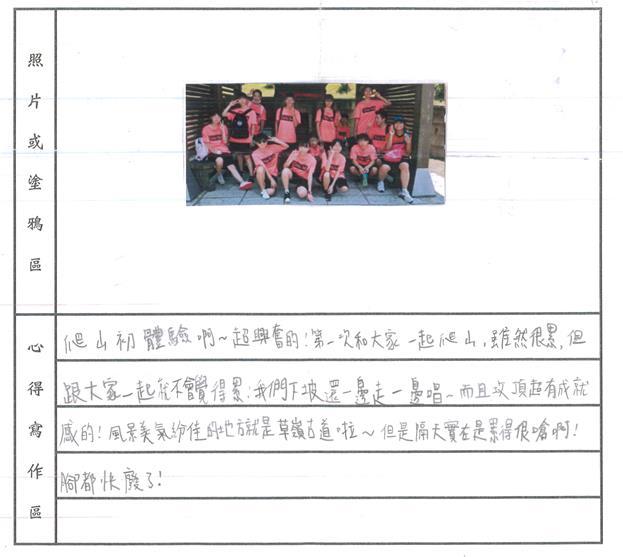 照片或塗鴉區
心得寫作區
爬山初體驗啊～超興奮的！第一次和大家一起爬山，雖然很累，但
跟大家一起就不會覺得累！我們下坡還一邊走一邊唱～而且攻頂超有成就
感的！風景美氣紛佳的地方就是草嶺古道啦～但是隔天實在是累得很嗆啊！
腳都快廢了！